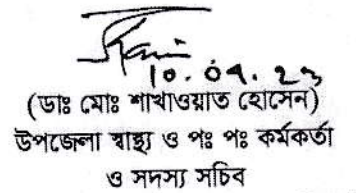 10.09.23
(ডাঃ মোঃ শাখাওয়াত হোসেন)
উপজেলা স্বাস্থ্য ও পঃ পঃ কর্মকর্তা
ও সদস্য সচিব